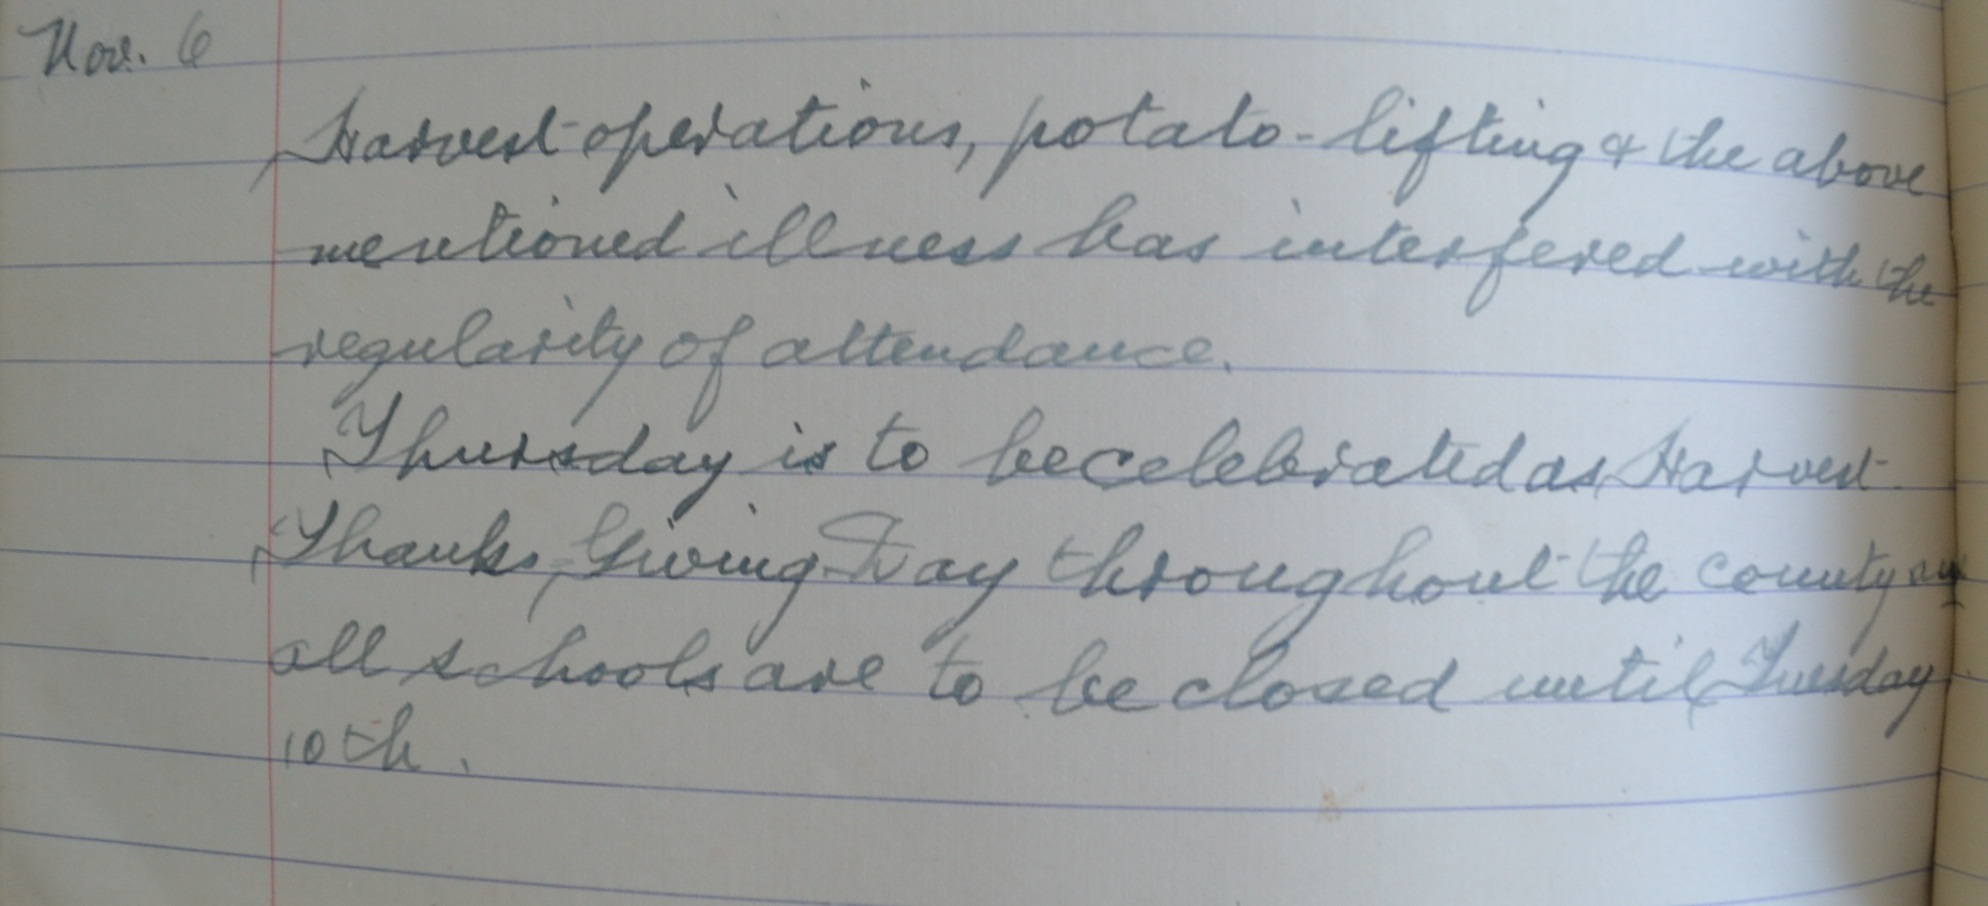 Nov. 6
Harvest operations, potato-lifting & the above
mentioned illness has interfered with the
regularity of attendance.
Thursday is to be celebrated as Harvest
Thanks-Giving Day throughout the county
all schools are to be closed until Tuesday
10th.